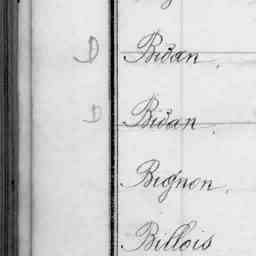 D Bidan.
D Bidan.
Bignon.
Billois